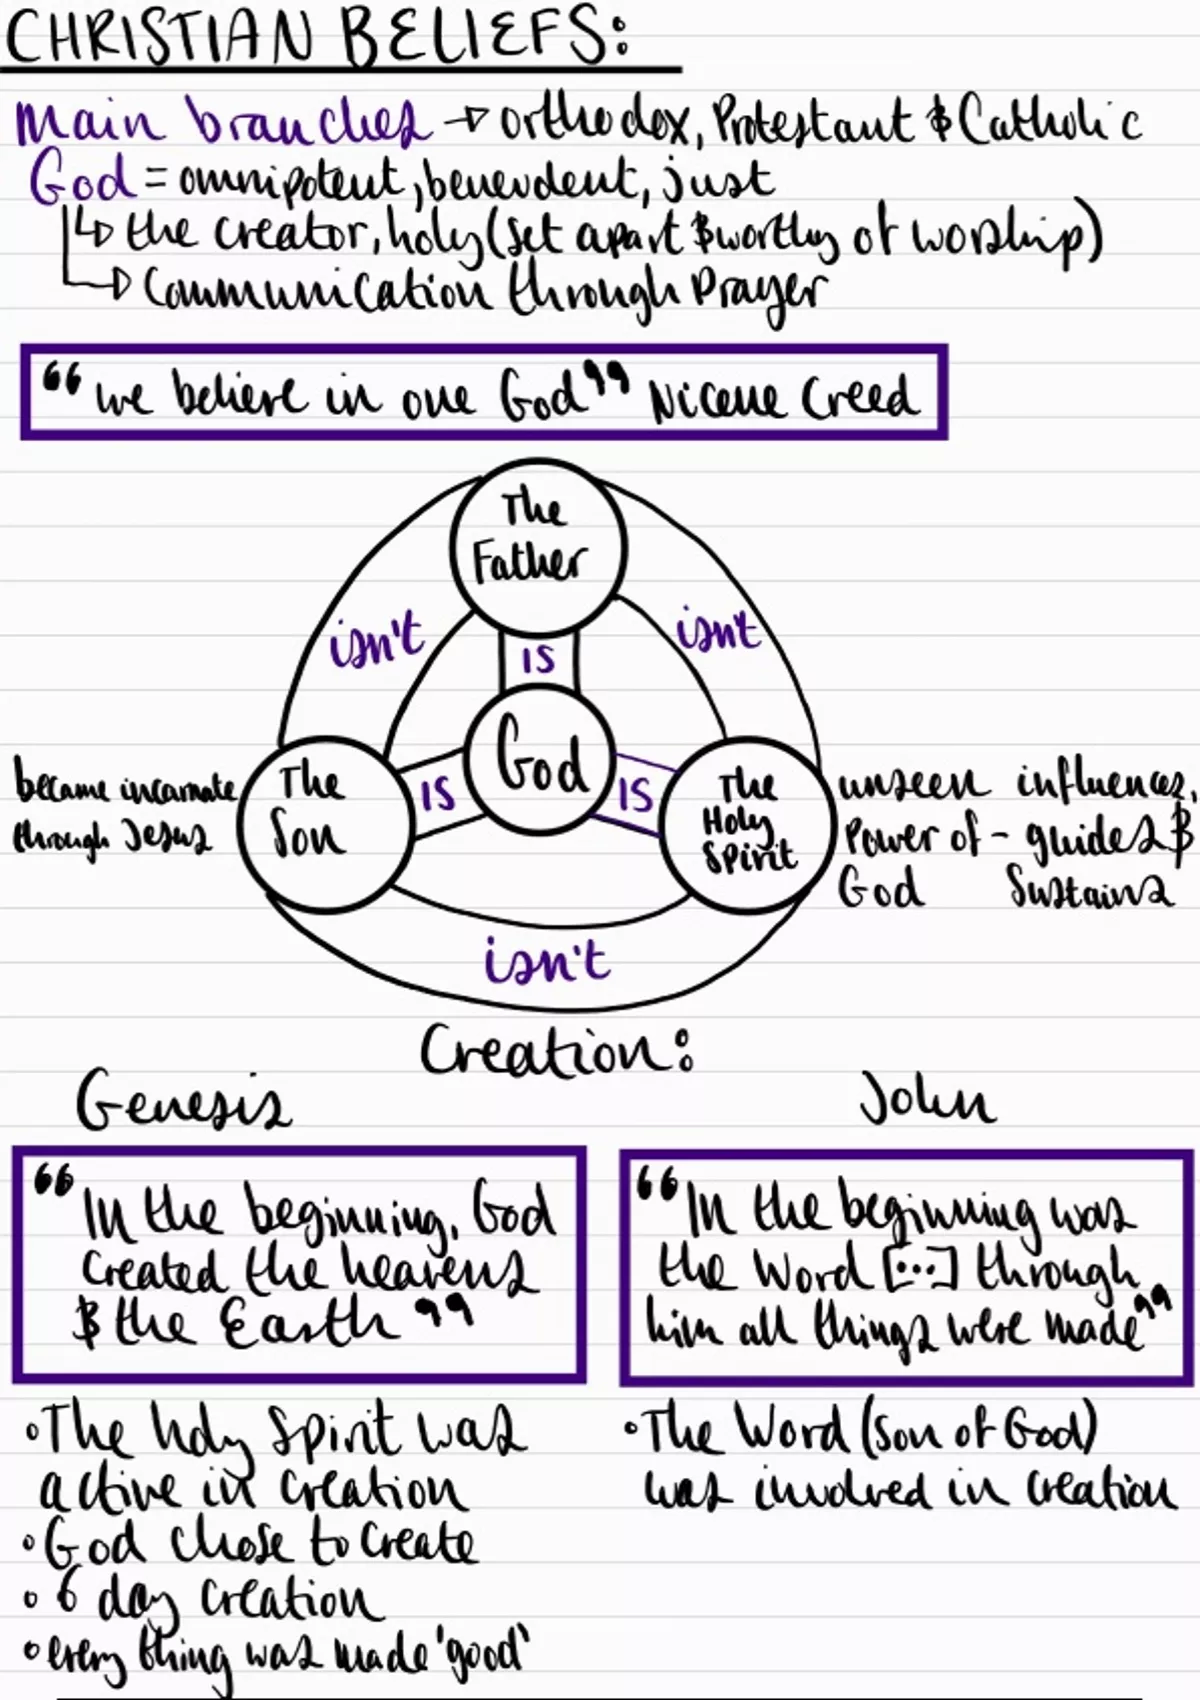 CHRISTIAN BELIEFS:
Main branches → orthodox, Protestant & Catholic
God = omnipotent, benevolent, just
↳ the creator, holy (set apart & worthy of worship)
↳ Communication through Prayer
“we believe in one God” Nicene Creed
The
Father
isn't
isn't
IS
God
became incarnate
through Jesus
The
Son
IS
IS
The
Holy
Spirit
unseen influences,
Power of - guides &
God sustains
isn't
Creation:
Genesis
John
“In the beginning, God
created the heavens
& the Earth”
“In the beginning was
the Word [...] through
him all things were made”
• The holy spirit was
active in creation
• God chose to create
• 6 day creation
• every thing was made 'good'
• The Word (son of God)
was involved in creation